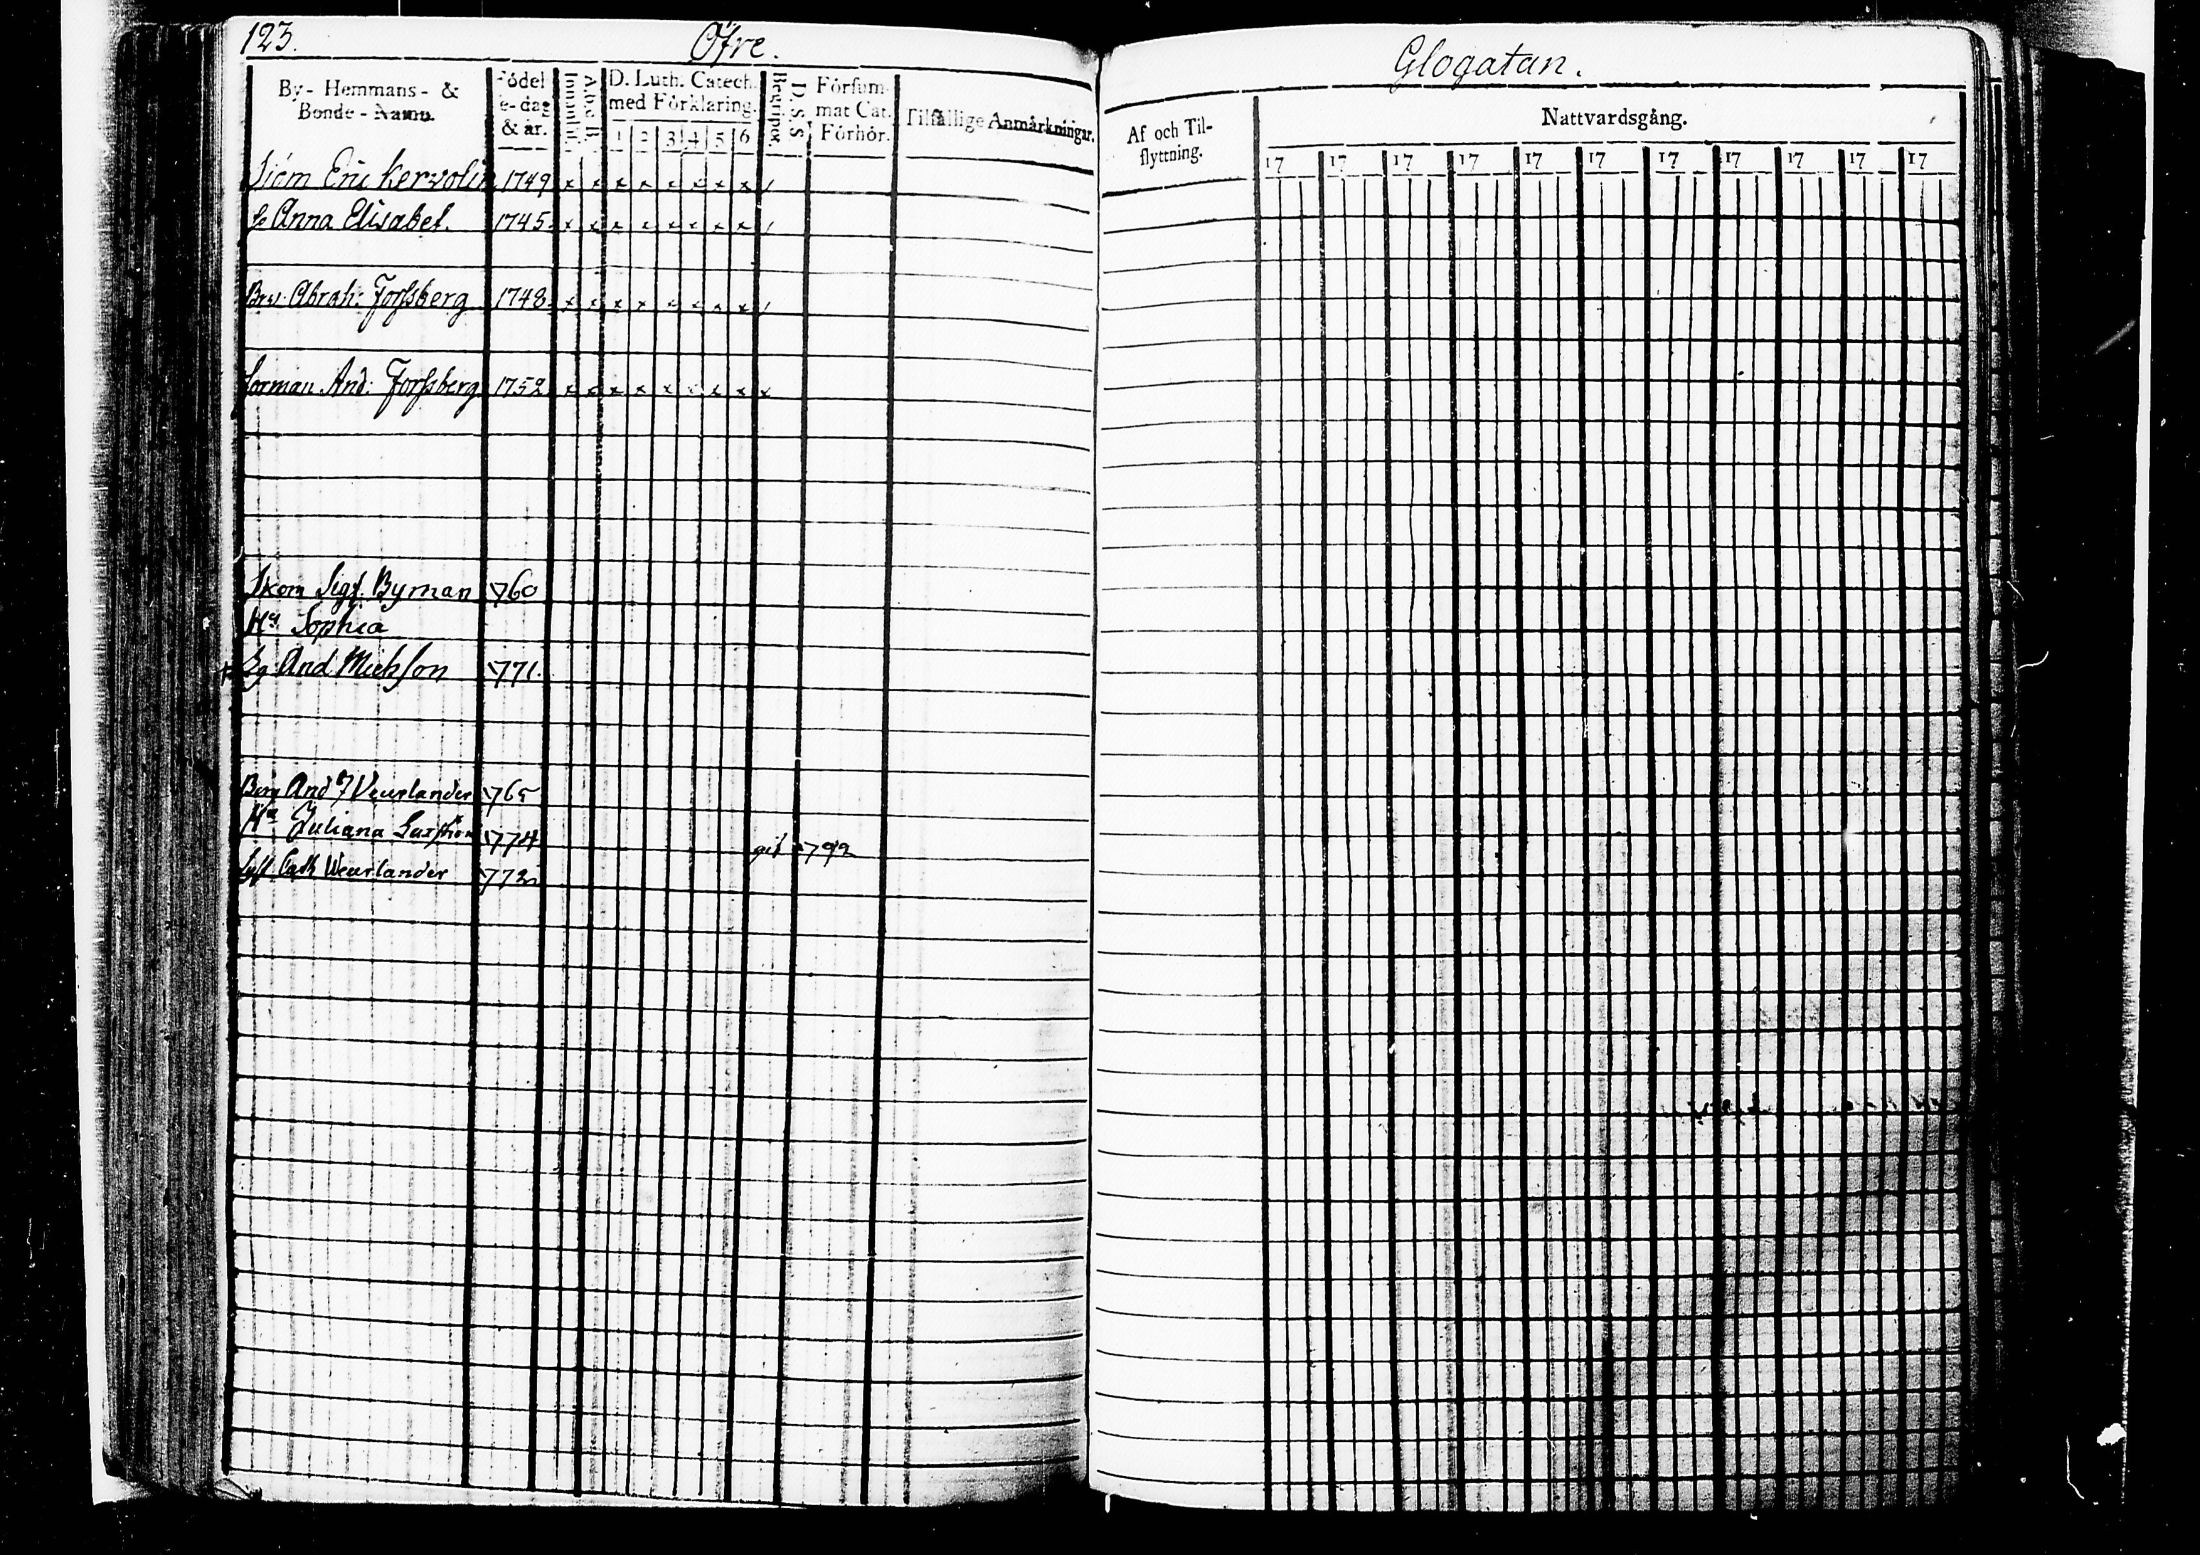 123.
Öfre.
By- Hemmans- &
Bonde-Namn.
Födel
e-dag
& år.
Innanläs.
A.b.c.B.
D. Luth. Catech.
med Förklaring.
1 2 3 4 5 6
Begripet.
D. S. S.
Försum-
mat Cat.
Förhör.
Tilfällige Anmärkningar.
Siöm Eric Kervolin 1749 x x x x x x x x /
h Anna Elisabet. 1745. x x x x x x x x /
Abrah: Forssberg 1748. x x x x x x x x /
And: Forssberg 1752 x x x x x x x x x
Skom Sigf. Byman 760
Hu Sophia
And Michsson 771.
And Weurlander 765
Hu Juliana 774
gift 1792
Cath Weurlander 772
Glogatan.
Af och Til-
flyttning.
Nattvardsgång.
17 17 17 17 17 17 17 17 17 17 17